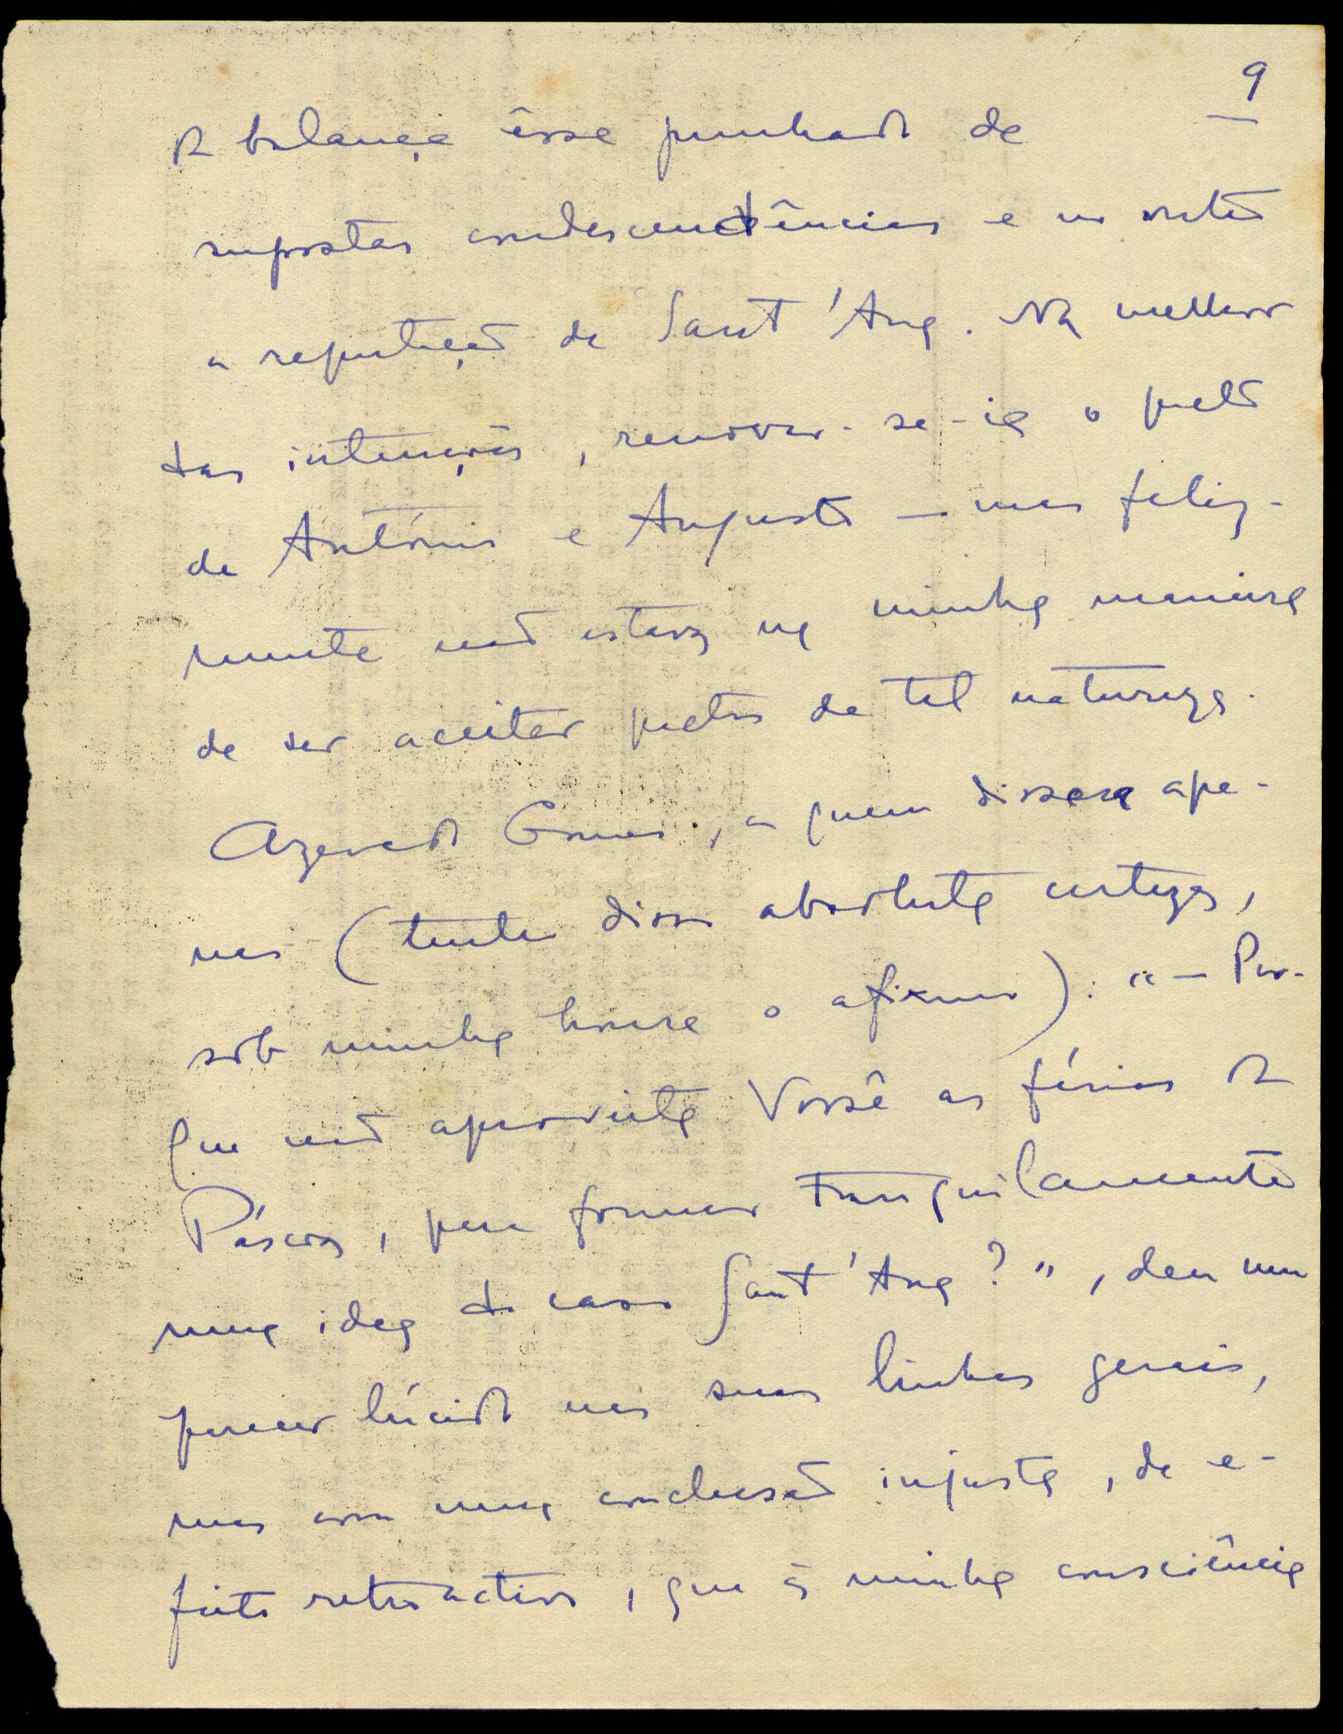 9
da balança êsse punhado de
supostas condescendências e no outro
a reputação de Sant'Ana. Na melhor
das intenções, renovar-se-ia o pacto
de António e Augusto — mas feliz-
mente não estava na minha maneira
de ser aceitar pactos de tal natureza.
Azevedo Gomes, a quem dissera ape-
nas (tenho disso absoluta certeza,
sob minha honra o afirmo): "— Por-
que não aproveita Vossê as férias da
Páscoa, para formar tranquilamente
uma idea do caso Sant'Ana?", deu um
parecer lúcido nas suas linhas gerais,
mas com uma conclusão injusta, de e-
feito retroactivo, que à minha consciência